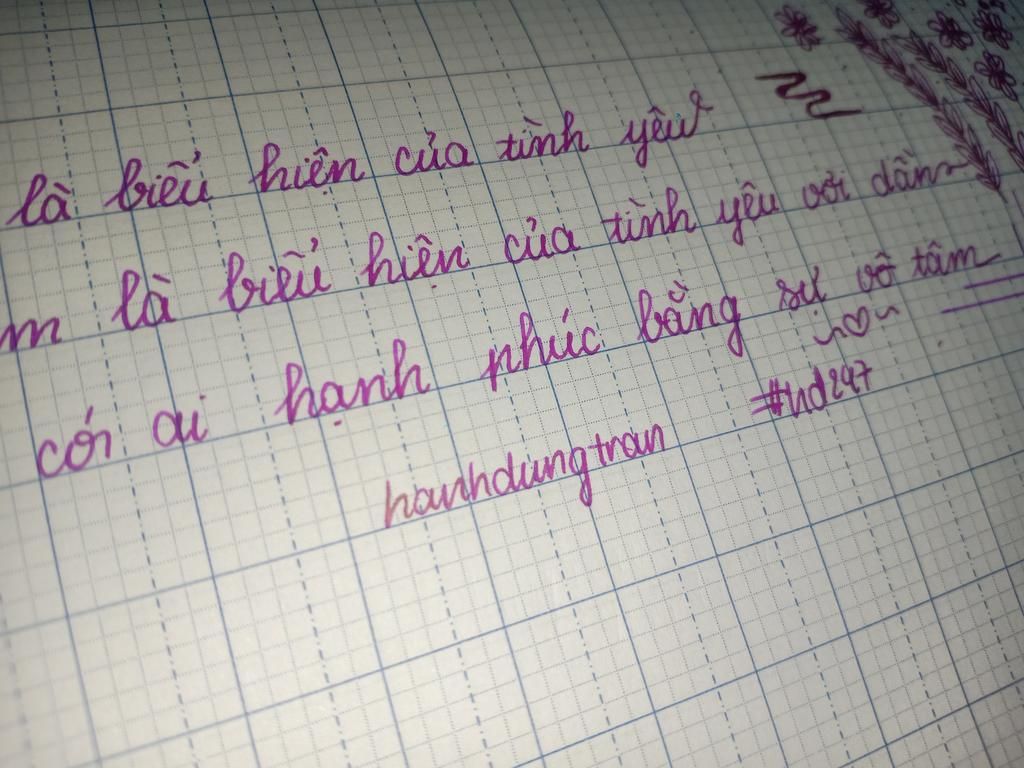 là biểu hiện của tình yêu
m là biểu hiện của tình yêu vơi dần
có ai hạnh phúc bằng sự vô tâm
#hd247
hanhdungtran